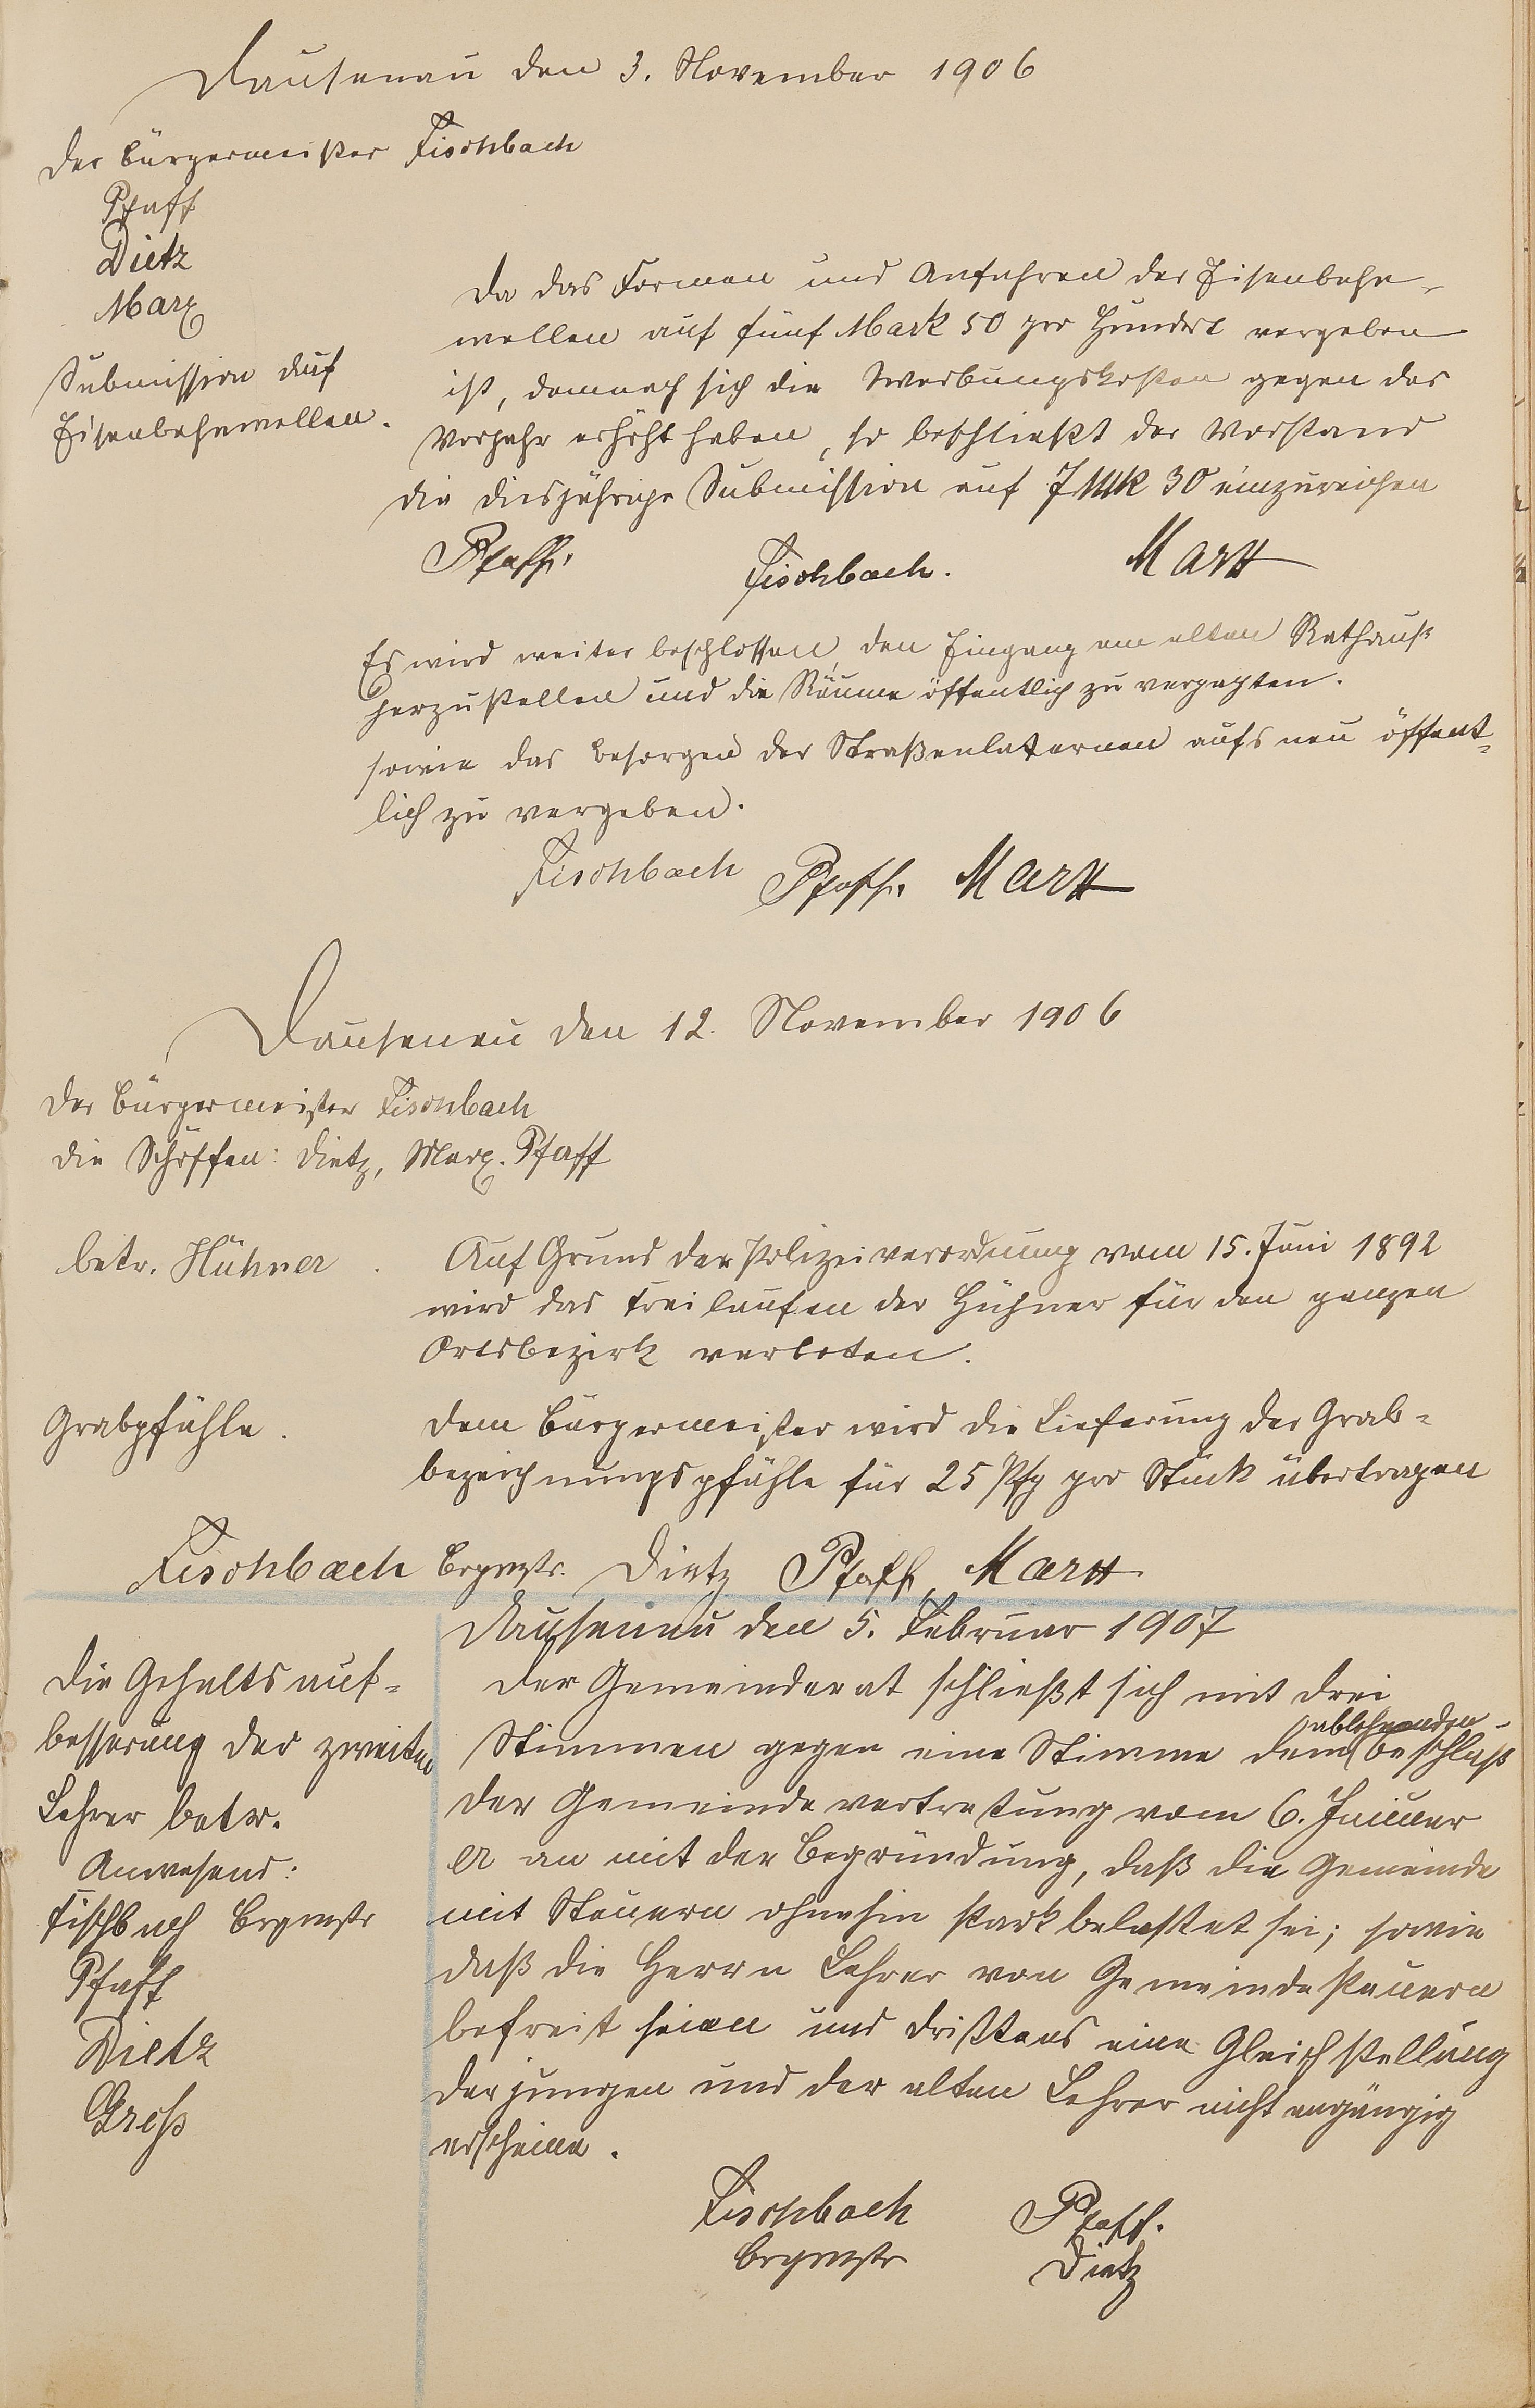 Dausenau den 3. November 1906
Der Bürgermeister Fischbach
Pfaff
Dietz
Marx
Submission auf
Eisenbahnwellen.
Da das Formen und Anfahren der Eisenbahn-
wellen auf fünf Mark 50 pro Hundert vergeben
ist, demnach sich die Werbungskosten gegen das
Vorjahr erhöht haben, so beschließt der Vorstand
die diesjährige Submission auf 7 Mk 30 einzureichen
Pfaff. Fischbach. Marx
Es wird weiter beschlossen, den Eingang am alten Rathaus
herzustellen und die Räume öffentlich zu verpachten.
sowie das Besorgen der Straßenlaternen aufs neu öffent-
lich zu vergeben.
Fischbach Pfaff. Marx
Dausenau den 12. November 1906
Der Bürgermeister Fischbach
Die Schöffen: Dietz, Marx. Pfaff
betr. Hühner.
Auf Grund der Polizeiverordnung vom 15. Juni 1892
wird das Freilaufen der Hühner für den ganzen
Ortsbezirk verboten.
Grabpfähle.
Dem Bürgermeister wird die Lieferung der Grab-
bezeichnungspfähle für 25 Pfg pro Stück übertragen
Fischbach Brgmstr. Dietz Pfaff, Marx
Dausenau den 5. Februar 1907
Die Gehaltsauf-
besserung der zweiten
Lehrer betr.
Anwesend:
Fischbach Brgmstr
Pfaff
Dietz
Groß
Der Gemeinderat schließt sich mit drei
Stimmen gegen eine Stimme dem ablehnenden Beschluß
der Gemeindevertretung vom 6. Januar
cr an mit der Begründung, daß die Gemeinde
mit Steuern ohnehin stark belastet sei; sowie
daß die Herrn Lehrer von Gemeindesteuern
befreit seien und drittens eine Gleichstellung
der jungen und der alten Lehrer nicht angängig
erscheine.
Fischbach Pfaff.
Brgmstr Dietz